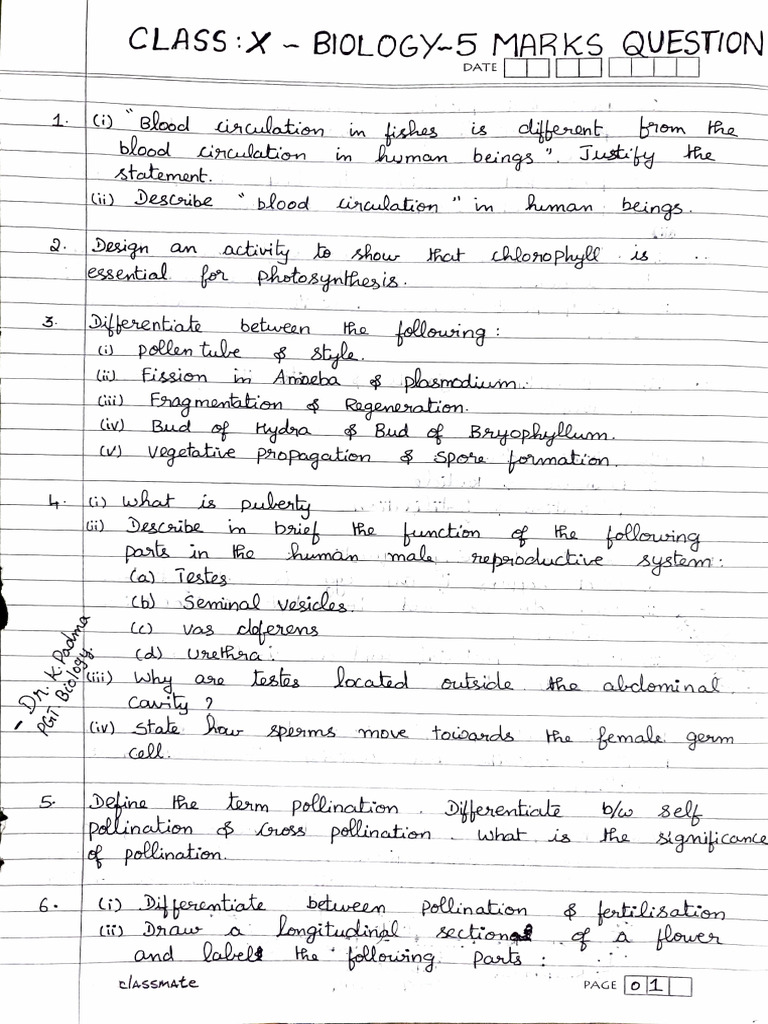 CLASS: X - BIOLOGY-5 MARKS QUESTION
DATE
1. (i) "Blood circulation in fishes is different from the
blood circulation in human beings". Justify the
statement.
(ii) Describe "blood circulation" in human beings.
2. Design an activity to show that chlorophyll is
essential for photosynthesis.
3. Differentiate between the following:
(i) pollen tube & style.
(ii) Fission in Amoeba & plasmodium.
(iii) Fragmentation & Regeneration.
(iv) Bud of Hydra & Bud of Bryophyllum.
(v) vegetative propagation & spore formation.
4. (i) What is puberty
(ii) Describe in brief the function of the following
parts in the human male reproductive system:
(a) Testes
(b) Seminal vesicles.
(c) vas deferens
(d) urethra.
- Dr. K. Padma
PGT Biology.
(iii) Why are testes located outside the abdominal
cavity?
(iv) State how sperms move towards the female germ
cell.
5. Define the term pollination. Differentiate b/w self
pollination & cross pollination. What is the significance
of pollination.
6. (i) Differentiate between pollination & fertilisation
(ii) Draw a longitudinal section of a flower
and label the following parts:
classmate
PAGE 01